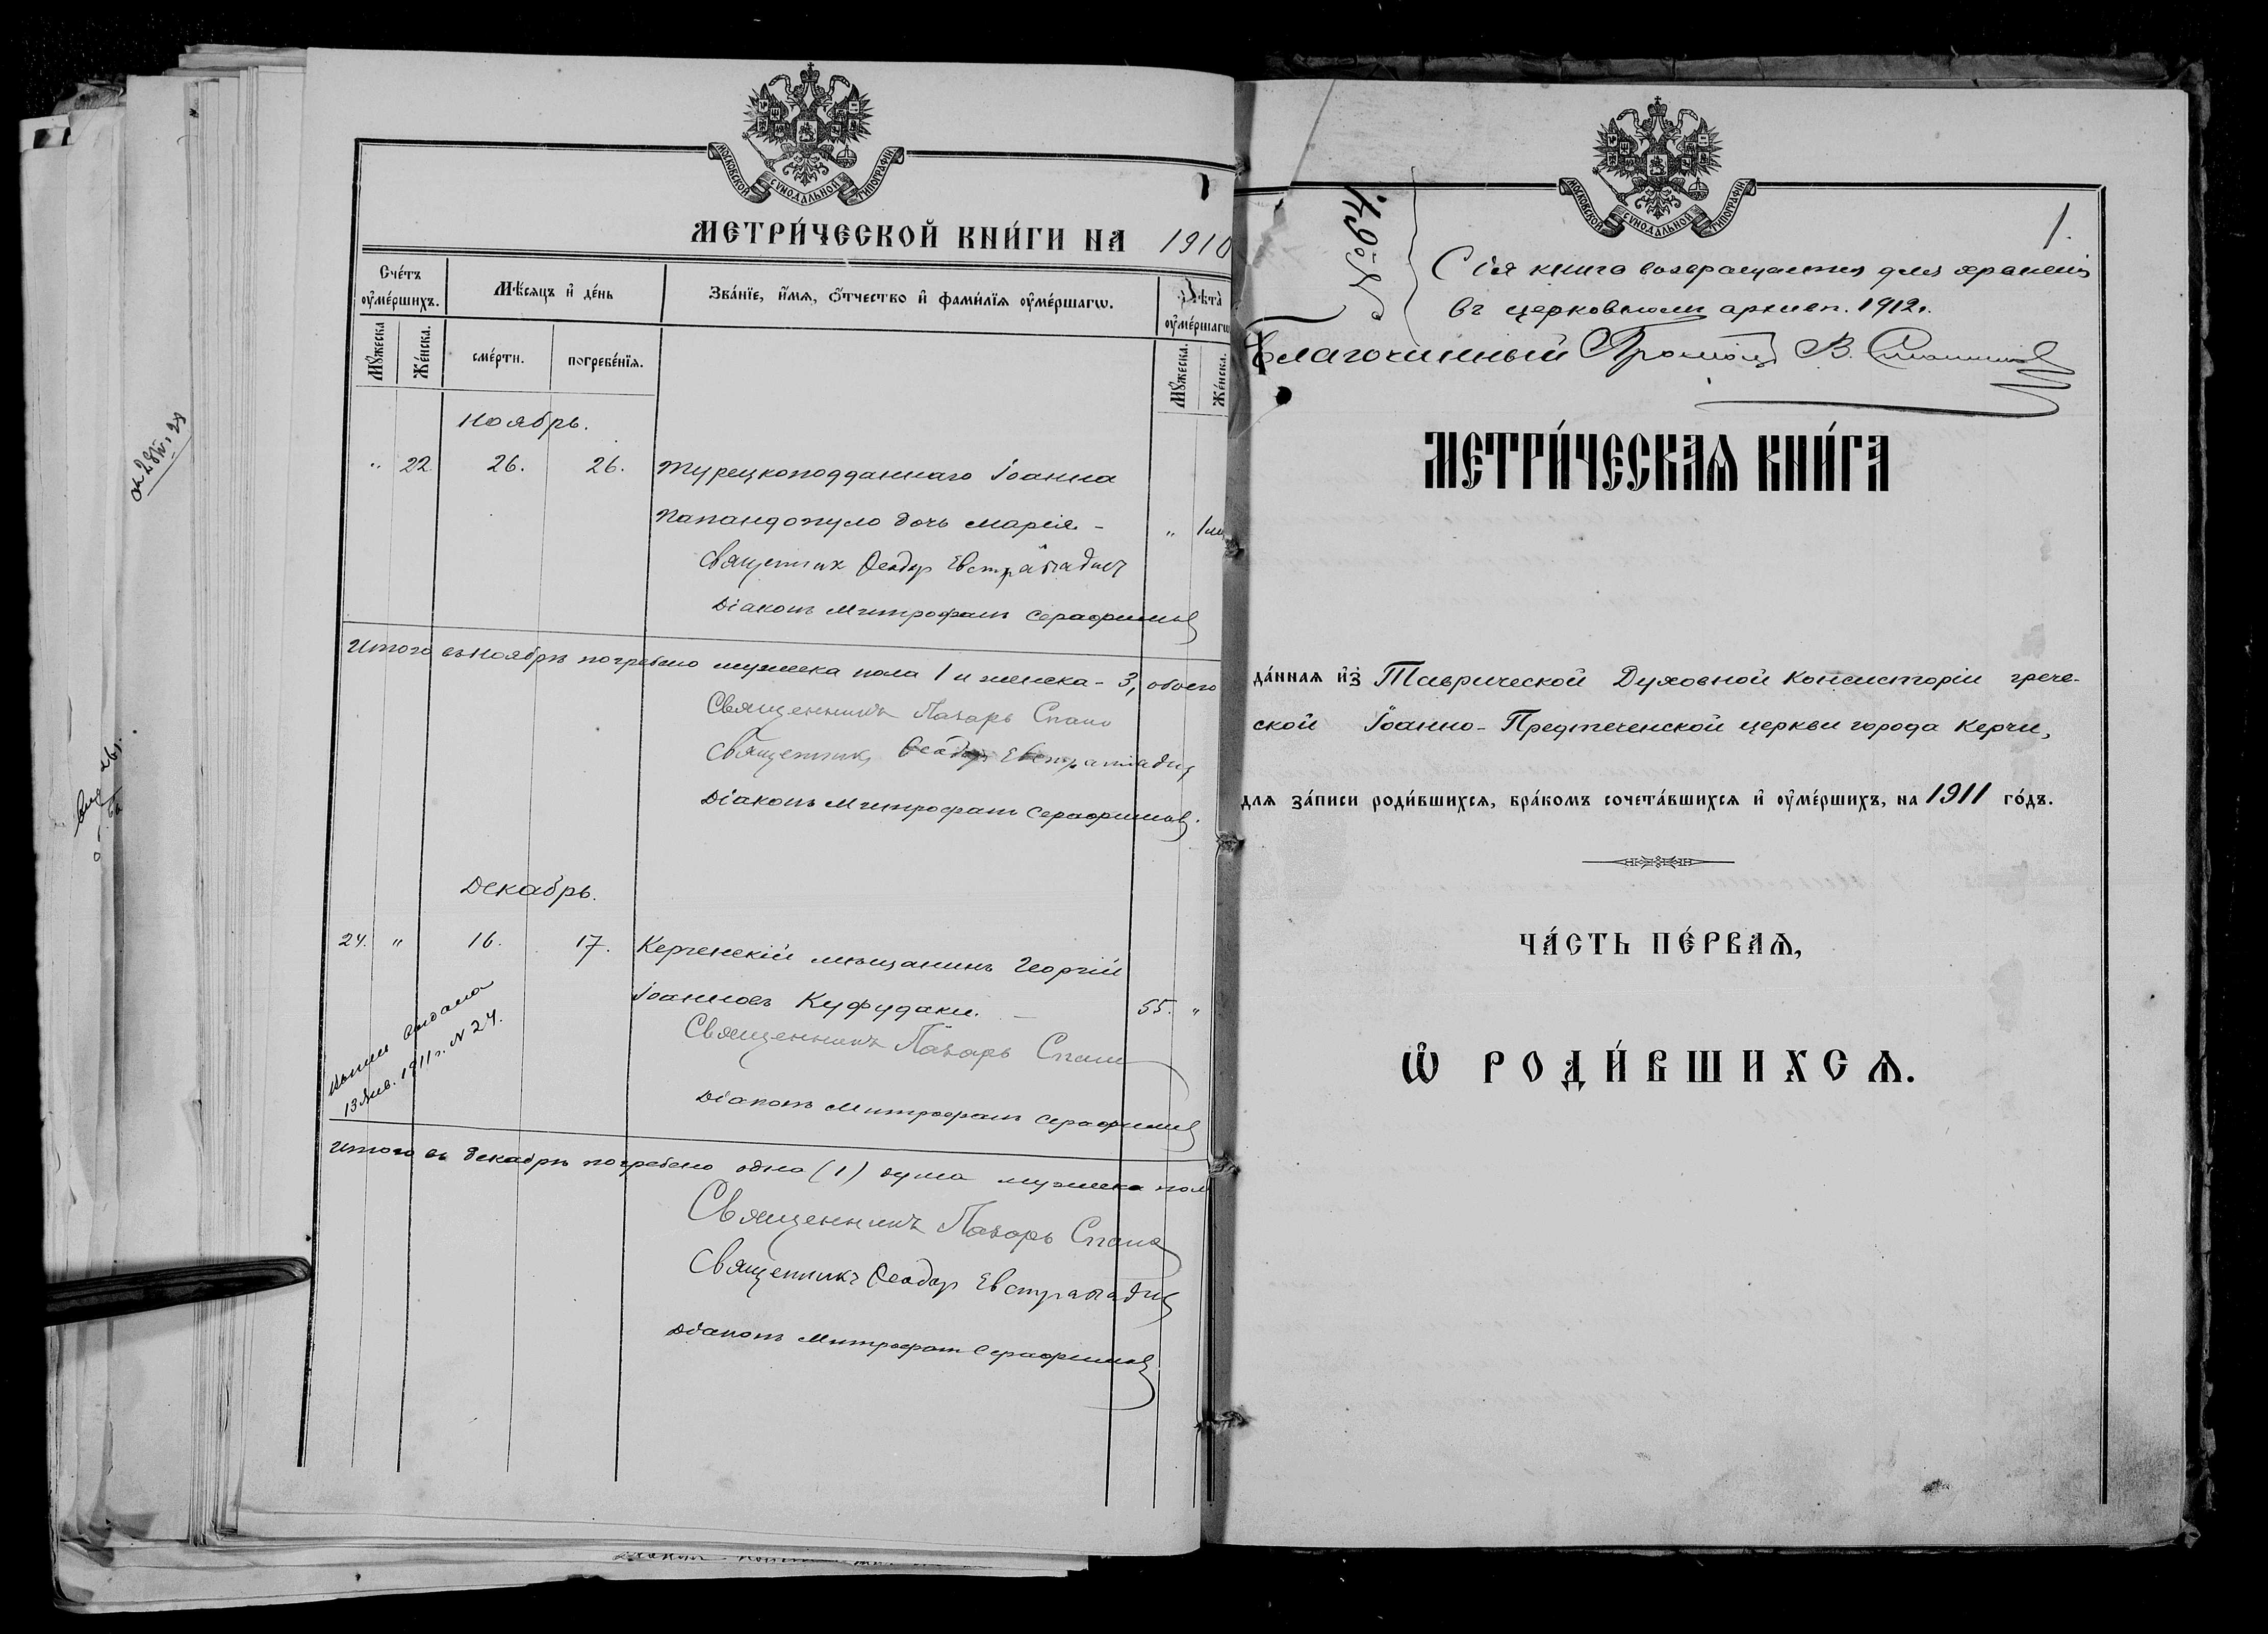 МОСКОВСКОЙ СѴНОДАЛЬНОЙ ТИПОГРАФІИ
МЕТРИ́ЧЕСКОЙ КНИ́ГИ НА 1910
Счéтъ оу҆мéршихъ.
Мѣ́сяцъ и҆ дéнь
Звáнїе, и҆́мѧ, ѻ҆́тчество и҆ фамѝлїѧ оу҆мéршагѡ.
Лѣ́та оу҆мéршагѡ
Мꙋ́жеска
Жéнска.
смéрти.
погребéнїѧ.
Мꙋ́жеска.
Жéнска.
Ноябрь.
" 22. 26. 26. Турецкоподданнаго Іоанна
Папандопуло дочь Марія - "
Священник Феодор Евстратіадис
Діаконъ Митрофанъ Серафимов
Итого въ Ноябрѣ погребено мужеска пола 1 и женска - 3, обоего
Священникъ Лазарь Спаи
Священник Феодор Евстратіадис
Діаконъ Митрофанъ Серафимов.
Декабрь.
24. " 16. 17. Керченскій мѣщанинъ Георгій
Іоанновъ Куфудаки. - 55. "
Священникъ Лазарь Спаи
выпись выдана
13 Янв. 1911 г. N 24.
Діаконъ Митрофанъ Серафимов
Итого въ декабрѣ погребено одна (1) душа мужеска пола
Священникъ Лазарь Спаи
Священникъ Феодор Евстратіадис
Діаконъ Митрофанъ Серафимов
МОСКОВСКОЙ СѴНОДАЛЬНОЙ ТИПОГРАФІИ
1.
Сія книга возвращается для храненія
въ церковномъ архивѣ. 1912 г.
Благочинный В.
МЕТРИ́ЧЕСКАѦ КНИ́ГА
дáннаѧ и҆зъ Таврической Духовной Консисторіи грече-
ской Іоанно-Предтеченской церкви города Керчи,
для зáписи роди́вшихсѧ, брáкомъ сочетáвшихсѧ и҆ оу҆мéршихъ, на 1911 гóдъ.
ЧÁСТЬ ПÉРВАѦ,
Ѽ РОДИ́ВШИХСѦ.